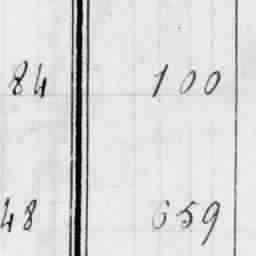 84 100
48 659